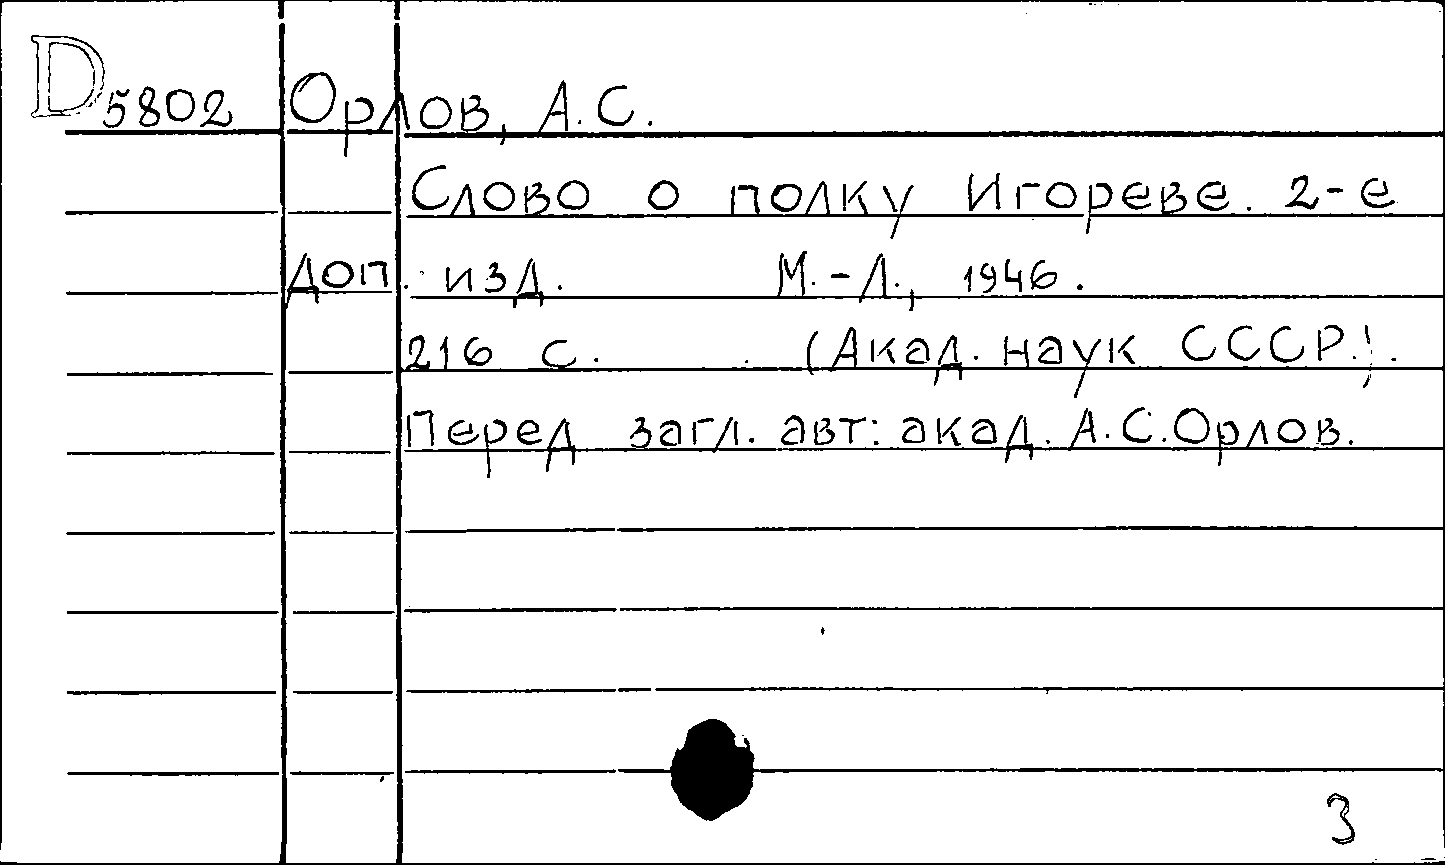 D5802 Орлов, А.С.
Слово о полку Игореве. 2-е
доп. изд. М.-Л., 1946.
216 с. (Акад. наук СССР.).
Перед загл. авт: акад. А.С.Орлов.
3